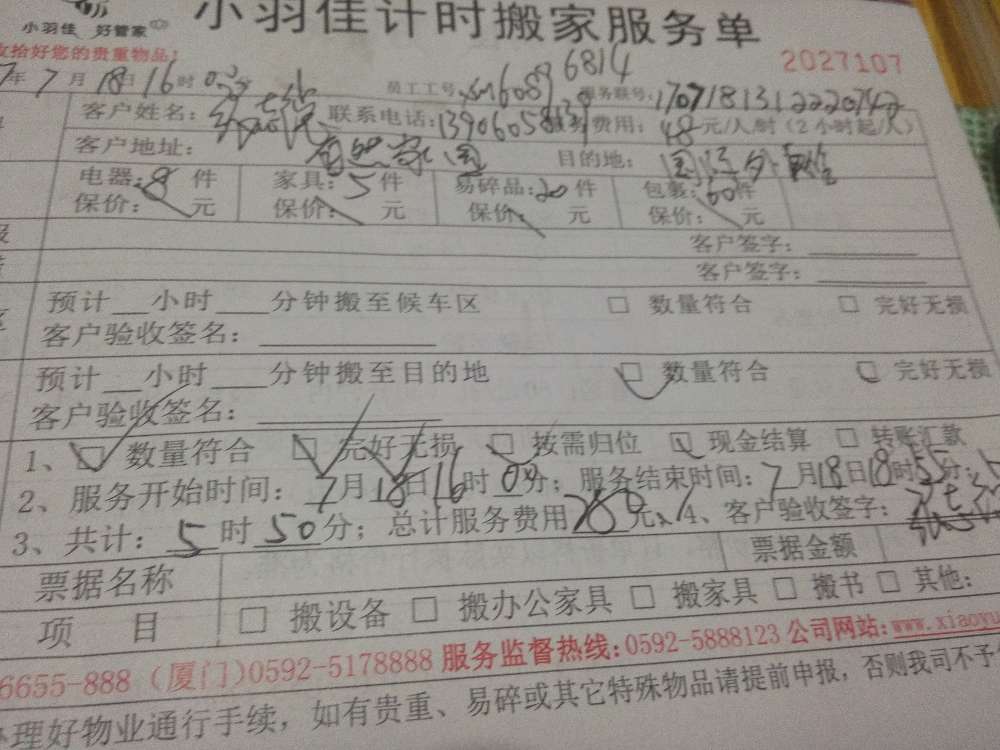 小羽佳计时搬家服务单
小羽佳 好管家
收拾好您的贵重物品!
2027107
7年7月18日16时 分 员工工号 xm6089 6814 服务联号:
客户姓名: 联系电话: 服务费用:48元/人/时(2小时起/人)
客户地址: 自然家园 目的地:
电器:8件 家具:5件 易碎品:20件 包裹:60件
保价: 元 保价: 元 保价: 元 保价: 元
客户签字:
客户签字:
预计__小时____分钟搬至候车区 □ 数量符合 □ 完好无损
客户验收签名:
预计__小时____分钟搬至目的地 □ 数量符合 □ 完好无损
客户验收签名:
1、□ 数量符合 □ 完好无损 □ 按需归位 □ 现金结算 □ 转账汇款
2、服务开始时间:7月18日16时00分;服务结束时间:7月18日18时55分;
3、共计:5时50分;总计服务费用280元 4、客户验收签字:
票据名称 票据金额
项 目 □ 搬设备 □ 搬办公家具 □ 搬家具 □ 搬书 □ 其他:
6655-888(厦门)0592-5178888 服务监督热线:0592-5888123 公司网站:www.xiaoyu
理好物业通行手续,如有贵重、易碎或其它特殊物品请提前申报,否则我司不予